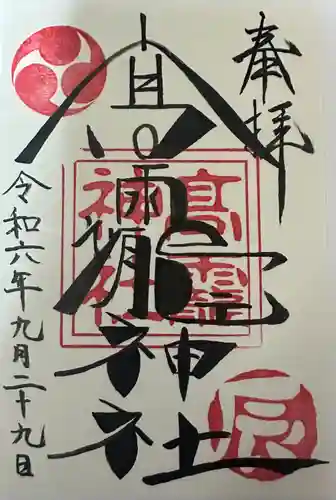 奉拝
高靇神社
令和六年九月二十九日
神社
辰